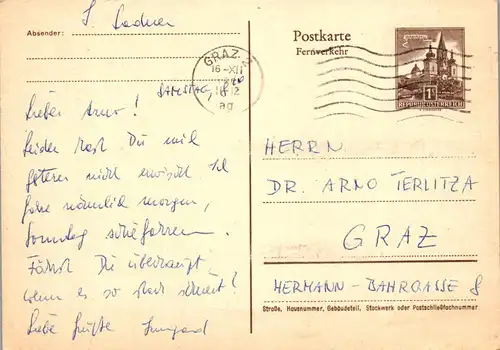 Absender: S. Ladner
Postkarte
Fernverkehr
GRAZ
16-XII
12
ag
REPUBLIK ÖSTERREICH
SAMSTAG, 18h
Lieber Arno!
Leider hast Du mich
gestern nicht erwischt. Ich
fahre nämlich morgen,
Sonntag schifahren.
Fährst Du überhaupt
wenn es so stark schneit?
Liebe Grüße Irmgard
HERRN
DR. ARNO TERLITZA
GRAZ
HERMANN-BAHRGASSE 8
Straße, Hausnummer, Gebäudeteil, Stockwerk oder Postschließfachnummer